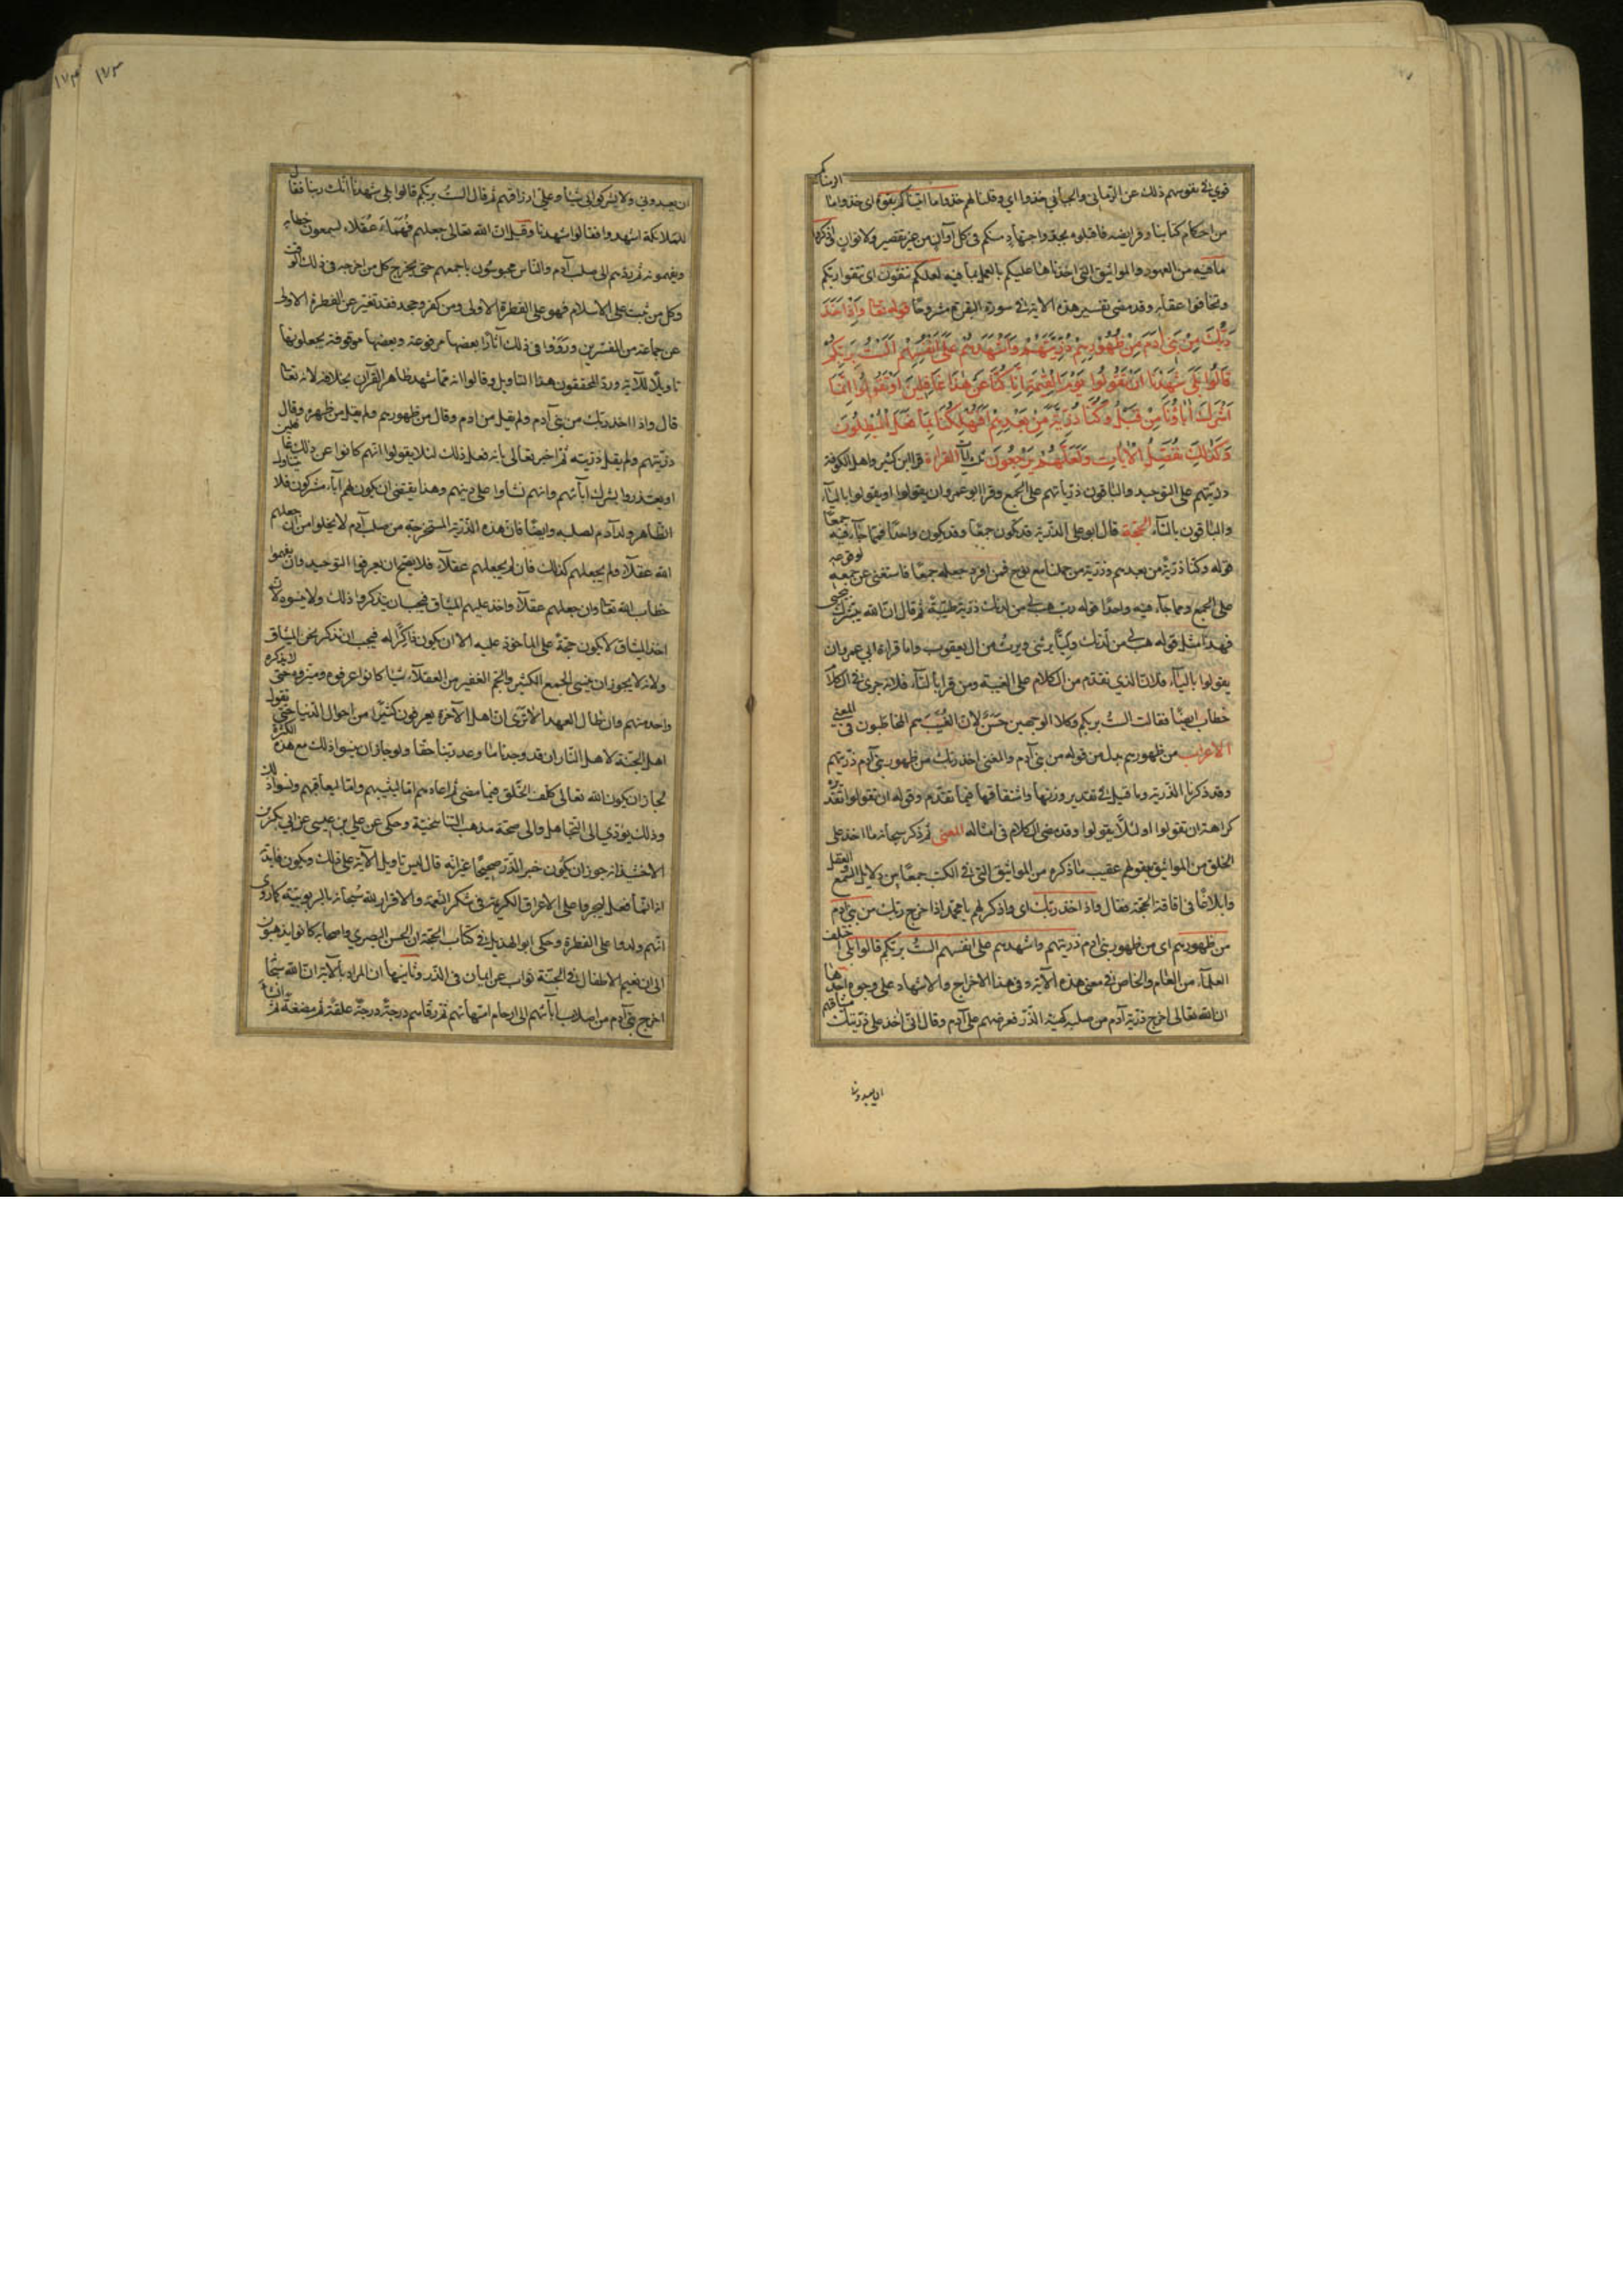 قوي في نفوسهم ذلك عن الرماني والجبائي خذوا اي وقلنا لهم خذوا ما اتيناكم بقوة اي خذوا ما الزمناكم
من احكام كتابنا وفرايضه فاقبلوه بجد واجتهاد منكم في كل اوان من غير تقصير ولا توان واذكروا
ما فيه من العهود والمواثيق التي اخذناها عليكم بالعمل بما فيه لعلكم تتقون اي تتقوا ربكم
وتخافوا عقابه وقد مضى تفسير هذه الاية في سورة البقرة مشروحا قوله تعا وَاِذْ اَخَذَ
رَبُّكَ مِنْ بَنِي اٰدَمَ مِنْ ظُهُورِهِمْ ذُرِّيَّتَهُمْ وَاَشْهَدَهُمْ عَلٰى اَنْفُسِهِمْ اَلَسْتُ بِرَبِّكُمْ
قَالُوا بَلٰى شَهِدْنَا اَنْ تَقُولُوا يَوْمَ الْقِيٰمَةِ اِنَّا كُنَّا عَنْ هٰذَا غَافِلِينَ اَوْ تَقُولُوا اِنَّمَا
اَشْرَكَ اٰبَاؤُنَا مِنْ قَبْلُ وَكُنَّا ذُرِّيَّةً مِنْ بَعْدِهِمْ اَفَتُهْلِكُنَا بِمَا فَعَلَ الْمُبْطِلُونَ
وَكَذٰلِكَ نُفَصِّلُ الْاٰيَاتِ وَلَعَلَّهُمْ يَرْجِعُونَ ثلث ايات القراءة قرا ابن كثير واهل الكوفة
ذريتهم على التوحيد والباقون ذرياتهم على الجمع وقرا ابو عمرو ان يقولوا او يقولوا بالياء
والباقون بالتاء الحجة قال ابو على الذرية قد تكون جمعا وقد تكون واحدا فمما جاء فيه جمعا
قوله وكنا ذرية من بعدهم وذرية من حملنا مع نوح فمن افرد جعله جمعا فاستغنى عن جمعه لوقوعه
على الجمع ومما جاء فيه واحدا قوله رب هب لي من لدنك ذرية طيبة ثم قال ان الله يبشرك بيحيى
فهذا مثل قوله هب لي من لدنك وليا يرثني ويرث من ال يعقوب واما قراءة ابي عمرو ان
يقولوا بالياء فلان الذي تقدم من الكلام على الغيبة ومن قرا بالتاء فلانه جرى في الكلام
خطاب ايضا فقالت الست بربكم وكلا الوجهين حسن لان الغيب هم المخاطبون في المعنى
الاعراب من ظهورهم بدل من قوله من بني آدم والمعنى اخذ ربك من ظهور بني آدم ذريتهم
وقد ذكرنا الذرية وما قيل في تقدير وزنها واشتقاقها فيما تقدم وقوله ان تقولوا تقديره
كراهة ان تقولوا او لئلا يقولوا وقد مضى الكلام في امثاله المعنى ثم ذكر سبحانه ما اخذ على
الخلق من المواثيق بعقولهم عقيب ما ذكره من المواثيق التي في الكتب جمعا بين دلايل السمع والعقل
وابلاغا في اقامة الحجة فقال واذ اخذ ربك اي واذكر لهم يا محمد اذ اخرج ربك من بني آدم
من ظهورهم اي من ظهور بني ادم ذريتهم واشهدهم على انفسهم الست بربكم قالوا بلى اختلف
العلماء من العام والخاص في معنى هذه الآية وفي هذا الاخراج والاشهاد على وجوه احدها
ان الله تعالى اخرج ذرية آدم من صلبه كهيئة الذر فعرضهم على آدم وقال اني اخذ على ذريتك ميثاقهم
ان يعبدوني
ان يعبدوني ولا يشركوا بي شيئا وعلي ارزاقهم ثم قال الست بربكم قالوا بلى شهدنا انك ربنا فقال
للملائكة اشهدوا فقالوا شهدنا وقيل ان الله تعالى جعلهم فهماء عقلاء يسمعون خطابه
ويفهمونه ثم ردهم الى صلب آدم والناس محبوسون باجمعهم حتى يخرج كل من اخرجه في ذلك الوقت
وكل من ثبت على الاسلام فهو على الفطرة الاولى ومن كفر وجحد فقد تغير عن الفطرة الاولى
عن جماعة من المفسرين ورووا في ذلك آثارا بعضها مرفوعة وبعضها موقوفة يجعلونها
تاويلا للآية ورد المحققون هذا التاويل وقالوا انه مما شهد ظاهر القرآن بخلافه لانه تعا
قال واذ اخذ ربك من بني آدم ولم يقل من ادم وقال من ظهورهم ولم يقل من ظهره وقال
ذريتهم ولم يقل ذريته ثم اخبر تعالى بانه فعل ذلك لئلا يقولوا انهم كانوا عن ذلك غافلين
او يعتذروا بشرك ابائهم وانهم نشاوا على دينهم وهذا يقتضي ان يكون لهم آباء مشركون فلا يتناول
الظاهر ولد آدم لصلبه وايضا فان هذه الذرية المستخرجة من صلب آدم لا يخلوا من ان جعلهم
الله عقلاء ولم يجعلهم كذلك فان لم يجعلهم عقلاء فلا يصح ان يعرفوا التوحيد وان يفهموا
خطاب الله تعا وان جعلهم عقلاء واخذ عليهم الميثاق فيجب ان يتذكروا ذلك ولا ينسوه لان
اخذ الميثاق لا يكون حجة على الماخوذ عليه الا ان يكون ذاكرا له فيجب ان نذكر نحن الميثاق
ولانه لا يجوز ان ينسى الجمع الكثير والجم الغفير من العقلاء شيئا كانوا عرفوه وميزوه حتى لا يذكره
واحد منهم وان طال العهد الا ترى ان اهل الآخرة يعرفون كثيرا من احوال الدنيا حتى يقول
اهل الجنة لاهل النار ان قد وجدنا ما وعدنا ربنا حقا ولو جاز ان ينسوا ذلك مع هذه الكثرة
لجاز ان يكون الله تعالى كلف الخلق فيما مضى ثم اعادهم اما ليثيبهم واما ليعاقبهم ونسوا ذلك
وذلك يؤدي الى التجاهل والى صحة مذهب التناسخية وحكي عن علي بن عيسى عن ابي بكر بن
الاخشيد انه جوز ان يكون خبر الذر صحيحا غير انه قال ليس تاويل الآية على ذلك ويكون فايدته
انه انما فعل ليجروا على الاعراق الكريمة في شكر النعمة والاقرار لله سبحانه بالربوبية كما روي
انهم ولدوا على الفطرة وحكى ابو الهذيل في كتاب الحجة ان الحسن البصري واصحابه كانوا يذهبون
الى ان نعيم الاطفال في الجنة ثواب عن ايمان في الذر وثانيها ان المراد بالآية ان الله سبحا
اخرج بني آدم من اصلاب آبائهم الى ارحام امهاتهم ثم رقاهم درجة درجة علقة ثم مضغة ثم